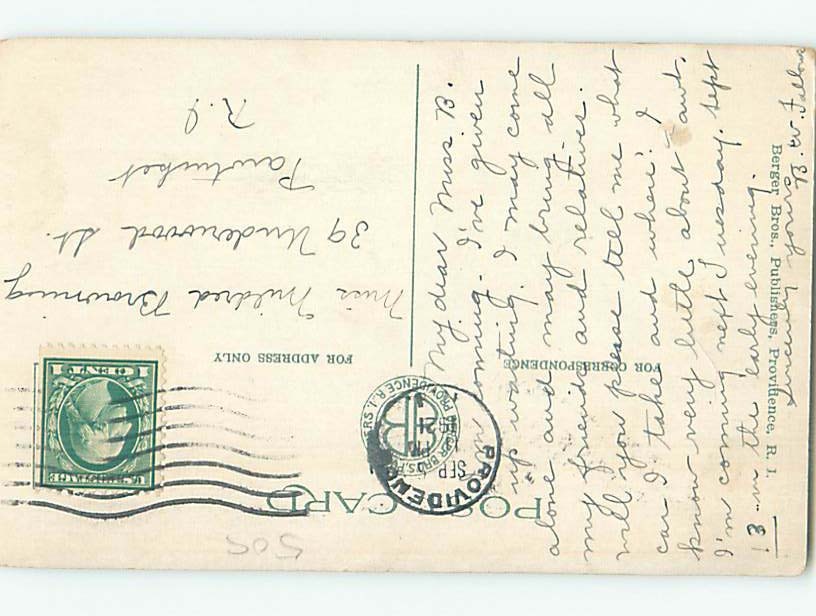 POST CARD
FOR CORRESPONDENCE
FOR ADDRESS ONLY
My dear Miss B.
coming. I've given
up waiting. I may come
alone and may bring all
my friends and relatives.
Will you please tell me what
car I take and where. I
know very little about Pawt.
I'm coming next Tuesday, Sept
8 in the early evening.
Sincerely yours
B. W. Fallon
Miss Mildred Browning
39 Underwood St.
Pawtucket
R.I
Berger Bros., Publishers, Providence, R. I.
PROVIDENCE
SEP
PM
BERGER BROS. PUBLISHERS
PROVIDENCE R.I.
U.S. POSTAGE
1 CENT 1
505